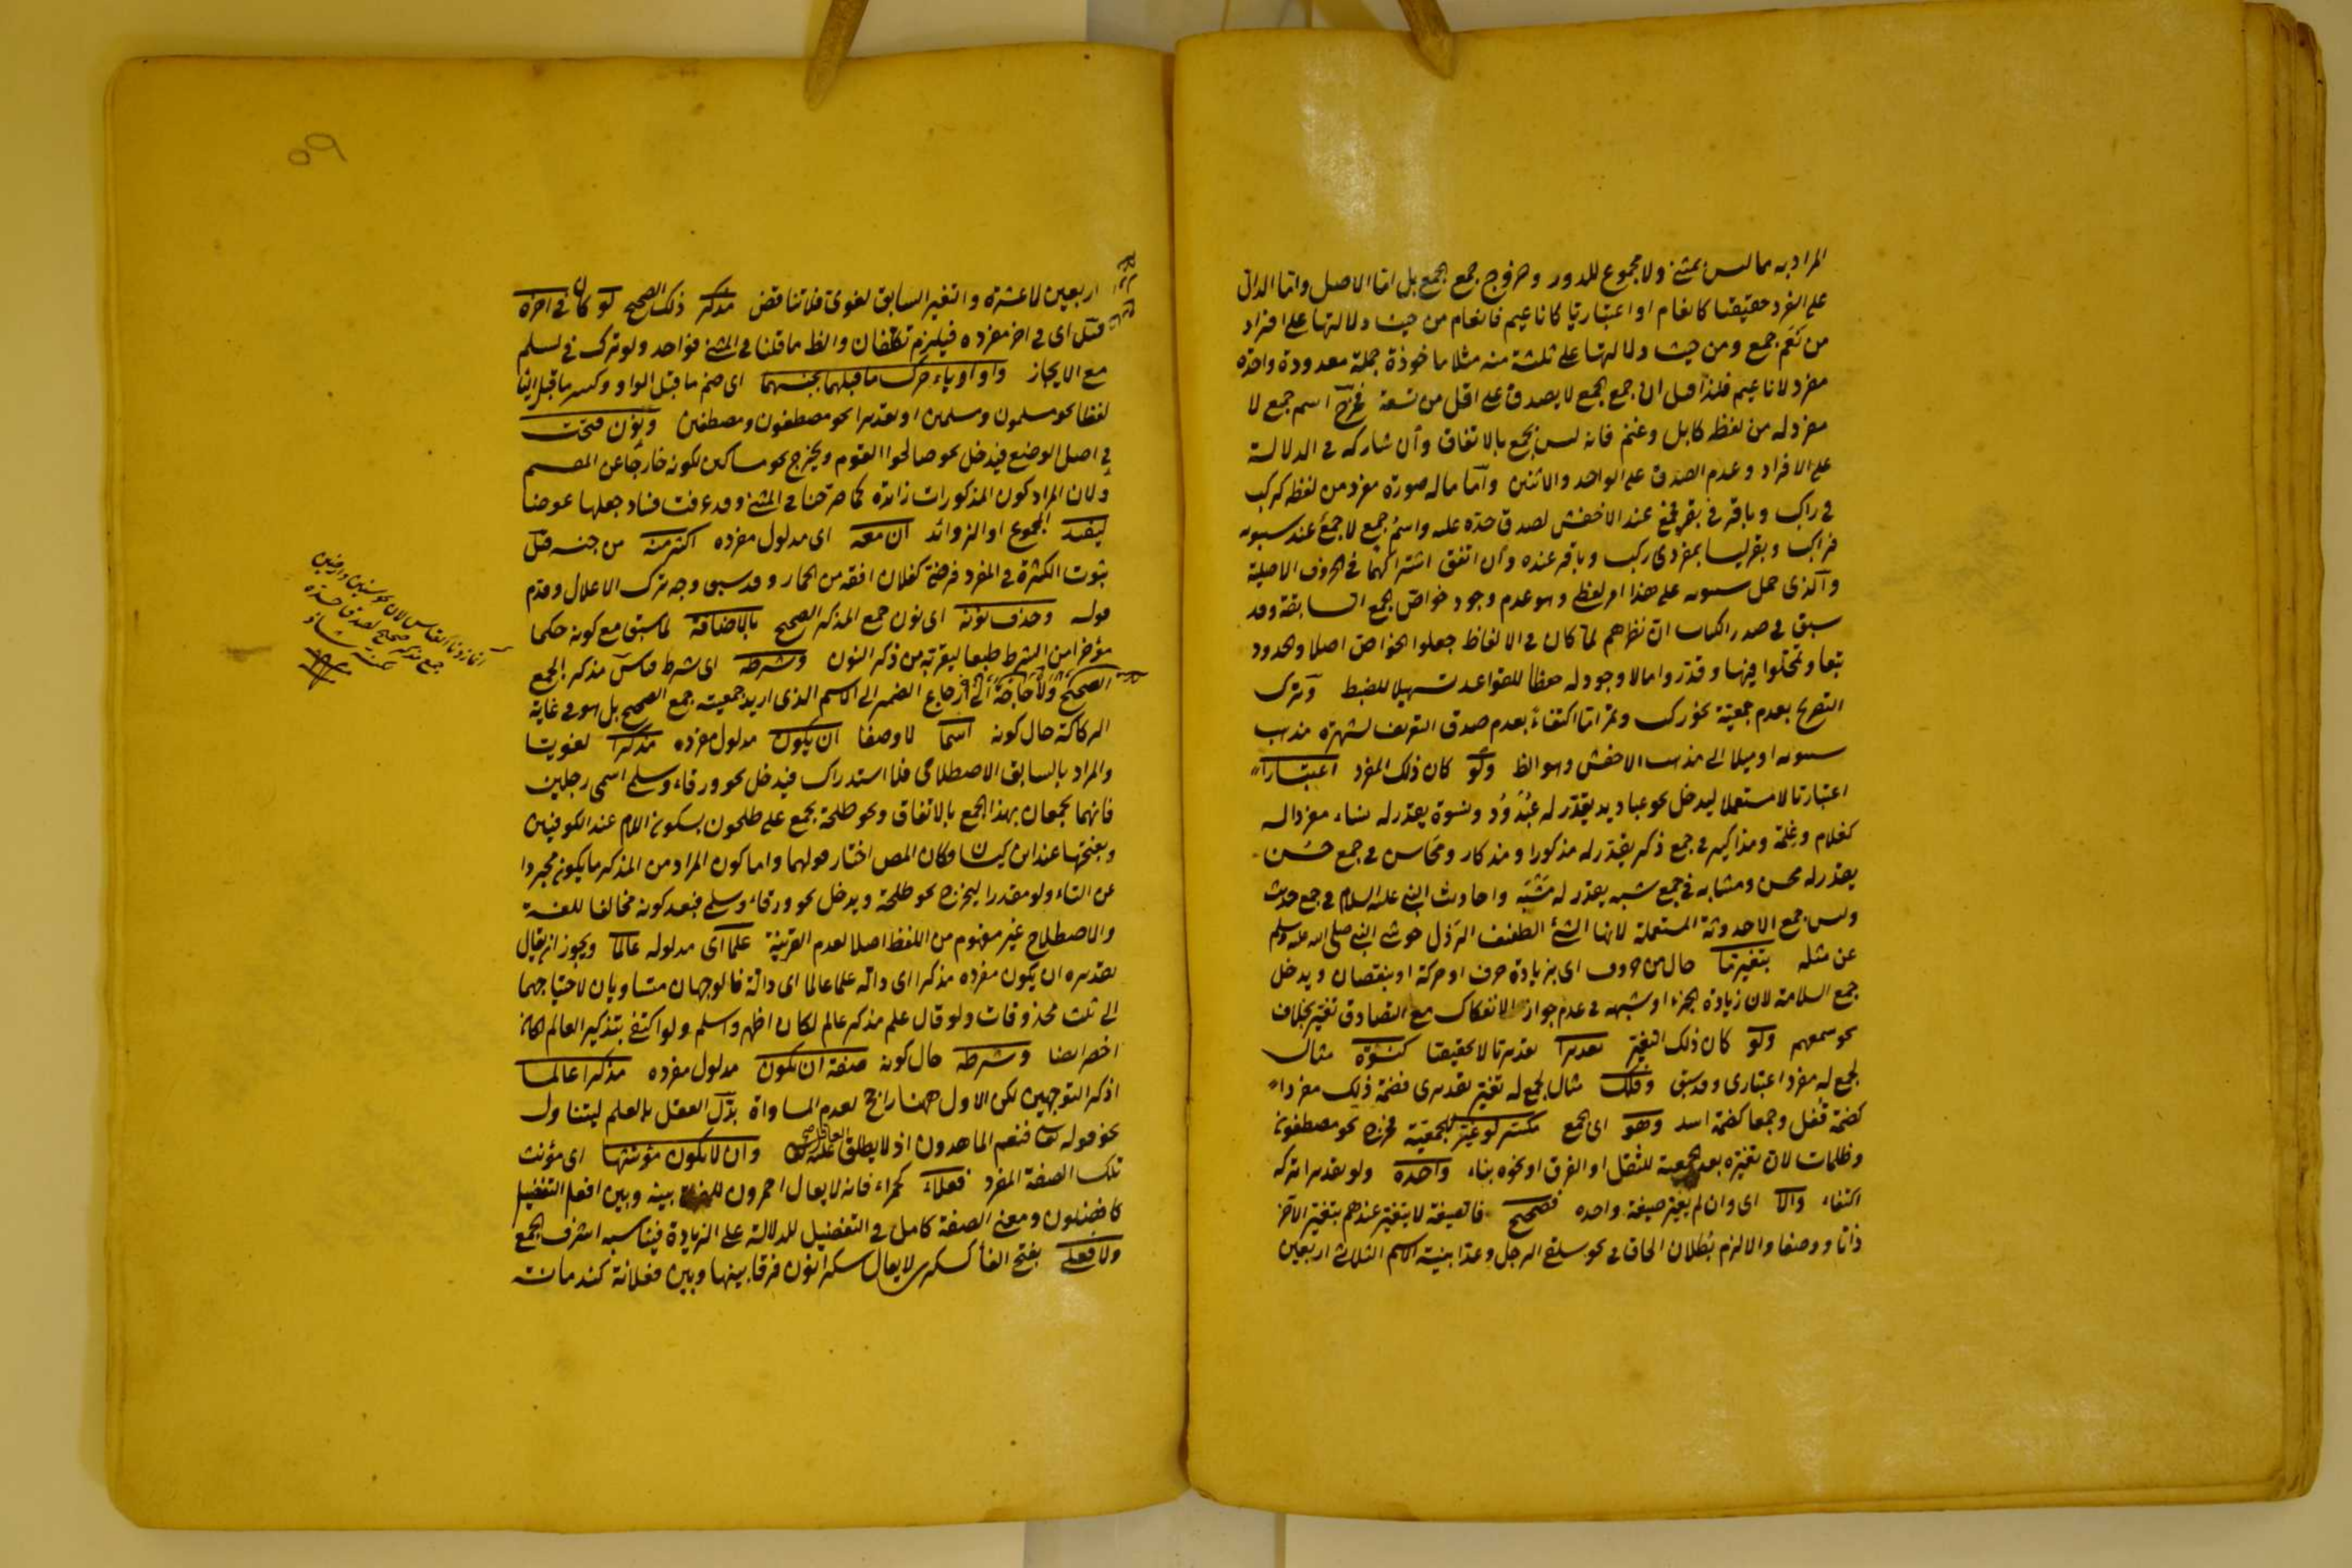 المراد به ما ليس بمثنى ولا مجموع للدور وخروج جمع الجمع بل اما الاصل واما الدال
على المفرد حقيقتا كانعام او اعتباريا كاناعيم فانعام من حيث دلالتها على افراد
من نعم جمع ومن حيث دلالتها على ثلثة منه مثلا ماخوذة جملة معدودة واحدة
مفرد لاناعيم فلذا قيل ان جمع الجمع لا يصدق على اقل من تسعة فخرج اسم جمع لا
مفرد له من لفظه كابل وغنم فانه ليس بجمع بالاتفاق وان شاركه في الدلالة
على الافراد وعدم الصدق على الواحد والاثنين واما ما له صورة مفرد من لفظه كركب
في راكب وباقر في بقر فجمع عند الاخفش لصدق حده عليه واسم جمع لا جمع عند سيبويه
فراكب وبقر ليسا بمفردي ركب وباقر عنده وان اتفق اشتراكهما في الحروف الاصلية
والذى حمل سيبويه على هذا امر لفظى وهو عدم وجود خواص الجمع السابقة وقد
سبق في صدر الكتاب ان نظرهم لما كان في الالفاظ جعلوا الخواص اصلا والحدود
تبعا وتمحلوا فيها وقدروا ما لا وجود له حفظا للقواعد تسهيلا للضبط وترك
التصريح بعدم جمعية نحو ركب وتمر اما اكتفاء بعدم صدق التعريف لشهرة مذهب
سيبويه او ميلا الى مذهب الاخفش وهو الظ ولو كان ذلك المفرد اعتبارا
اعتباريا لا مستعملا ليدخل نحو عباديد يقدر له عبدود ونسوة يقدر له نساء مفرد اله
كغلام وغلمة ومذاكير في جمع ذكر يقدر له مذكورا ومذكار ومحاسن في جمع حسن
يقدر له محسن ومشابه في جمع شبه يقدر له مشبه واحاديث النبى عليه السلام في جمع حديث
وليس جمع الاحدوثة المستعملة لانها الشئ الطفيف الرذل حوشى النبى صلى الله عليه وسلم
عن مثله بتغير ما حال من حروف اى بزيادة حرف او حركة او بنقصان ويدخل
جمع السلامة لان زيادة الجزء او شبهه في عدم جواز الانفكاك مع التصادق تغير بخلاف
نحو سمعهم ولو كان ذلك التغير تقديرا تقديريا لا تحقيقيا كنسوة مثال
لجمع له مفرد اعتبارى وقد سبق وفلك مثال لجمع له تغير تقديرى فضمة ذلك مفردا
كضمة قفل وجمعا كضمة اسد وهو اى الجمع مكسر لو غير للجمعية فخرج نحو مصطفون
وظلمات لان تغيره بعد الجمعية للثقل او الفرق او نحوه بناء واحده ولو تقديرا تركه
اكتفاء والا اى وان لم يغير صيغة واحده فصحيح فالصيغة لا يتغير عندهم بتغير الآخر
ذاتا ووصفا والا لزم بطلان الحاق في نحو سلقى الرجل وعد ابنية الاسم الثلاثى اربعين
٥٩
اربعين لا عشرة والتغير السابق لغوى فلا تناقض مذكر ذلك الصحيح لو كان في اخره
قيل اى في اخر مفرده فيلزم تكلفان والظ ما قلنا في المثنى فواحد ولو ترك في لسلم
مع الايجاز واو او ياء حرك ما قبلهما بجنسهما اى ضم ما قبل الواو وكسر ما قبل اليا
لفظا نحو مسلمون ومسلمين او تقديرا نحو مصطفون ومصطفين ونون فتحت
في اصل الوضع فيدخل نحو صالحوا القوم ويخرج نحو مساكين لكونه خارجا عن المقسم
ولان المراد كون المذكورات زائدة كما صرحنا في المثنى وقد عرفت فساد جعلها عوضا
ليفيد المجموع او الزوائد ان معه اى مدلول مفرده اكثر منه من جنسه قيل
ثبوت الكثرة في المفرد فرضى كفلان افقه من الحمار وقد سبق وجه ترك الاعلال وقدم
قوله وحذف نونه اى نون جمع المذكر الصحيح بالاضافة لما سبق مع كونه حكما
مؤخرا من الشرط طبعا لقربه من ذكر النون وشرطه اى شرط قياس مذكر الجمع
الصحيح ولا حاجة الى ارجاع الضمير الى الاسم الذى اريد جمعيته جمع الصحيح بل هو في غاية
الركاكة حال كونه اسما لا وصفا ان يكون مدلول مفرده مذكرا لغويا
والمراد بالسابق الاصطلاحى فلا استدراك فيدخل نحو ورقاء وسلمى اسمى رجلين
فانهما يجمعان بهذا الجمع بالاتفاق ونحو طلحة يجمع على طلحون بسكون اللام عند الكوفيين
وبفتحها عند ابن كيسان فكان المص اختار قولهما واما كون المراد من المذكر ما يكون مجردا
عن التاء ولو مقدرا ليخرج نحو طلحة ويدخل نحو ورقاء وسلمى فبعد كونه مخالفا للغة
والاصطلاح غير مفهوم من اللفظ اصلا لعدم القرينة علما اى مدلوله عالما ويجوز ان يقال
تقديره ان يكون مفرده مذكرا اى دالة علما عالما اى دالة فالوجهان متساويان لاحتياجهما
الى ثلث محذوفات ولو قال علم مذكر عالم لكان اظهر واسلم ولو اكتفى بتذكير العالم لكان
اخصر ايضا وشرطه حال كونه صفة ان يكون مدلول مفرده مذكرا عالما
اذكر التوجهين لكن الاول ههنا راجح لعدم المساواة بدل العقل بالعلم ليتناول
نحو قوله تعا فنعم الماهدون اذ لا يطلق عليه العاقل وان لا يكون مؤنثها اى مؤنث
تلك الصفة المفرد فعلاء كحمراء فانه لا يقال احمرون للفرق بينه وبين افعل التفضيل
كافضلون ومعنى الصفة كامل في التفضيل للدلالة على الزيادة فيناسبه اشرف الجمع
ولا فعلى بفتح الفا كسكرى لا يقال سكرانون فرقا بينها وبين فعلانة كندمانة
جمع مذكر صحيح لصدق حده